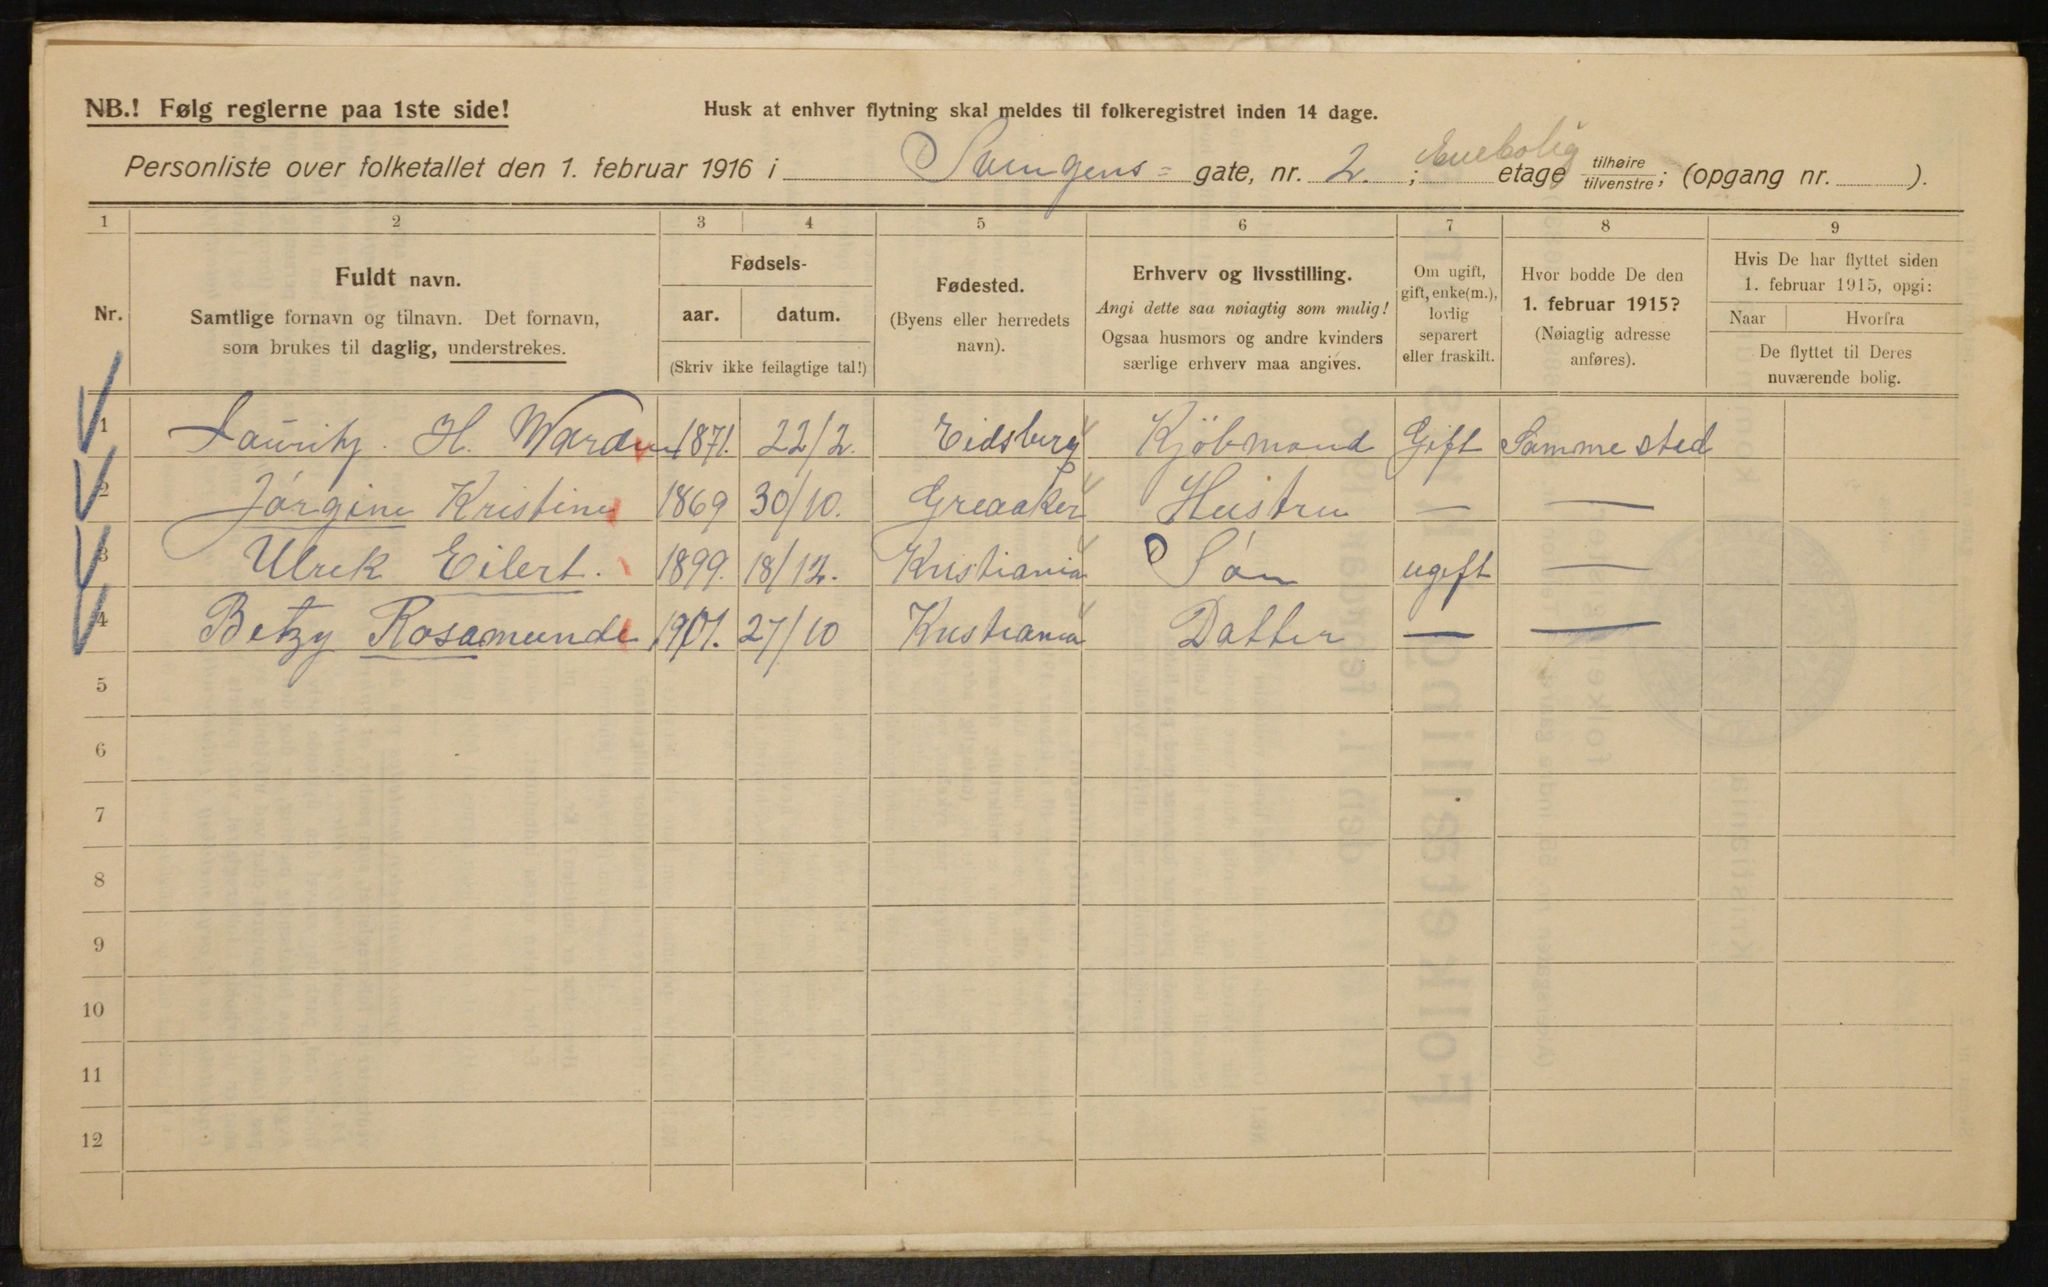 NB.! Følg reglerne paa 1ste side! Husk at enhver flytning skal meldes til folkeregistret inden 14 dage.
Personliste over folketallet den 1. februar 1916 i Svingens- gate, nr. 2. ; Enebolig etage tilhøire tilvenstre ; (opgang nr. ).
1 2 3 4 5 6 7 8 9
Nr.
Fuldt navn.
Samtlige fornavn og tilnavn. Det fornavn,
som brukes til daglig, understrekes.
Fødsels-
aar. datum.
(Skriv ikke feilagtige tal!)
Fødested.
(Byens eller herredets
navn).
Erhverv og livsstilling.
Angi dette saa nøiagtig som mulig!
Ogsaa husmors og andre kvinders
særlige erhverv maa angives.
Om ugift,
gift, enke(m.),
lovlig
separert
eller fraskilt.
Hvor bodde De den
1. februar 1915?
(Nøiagtig adresse
anføres).
Hvis De har flyttet siden
1. februar 1915, opgi:
Naar Hvorfra
De flyttet til Deres
nuværende bolig.
1 Lauritz. H. 1871. 22/2. Eidsberg Kjöbmand Gift Samme sted
2 Jørgine Kristine 1869 30/10. Greaaker Hustru — —
3 Ulrek Eilert. 1899. 18/12. Kristiania Søn ugift —
4 Betzy Rosamunde 1901. 27/10 Kristiania Datter — —
5
6
7
8
9
10
11
12